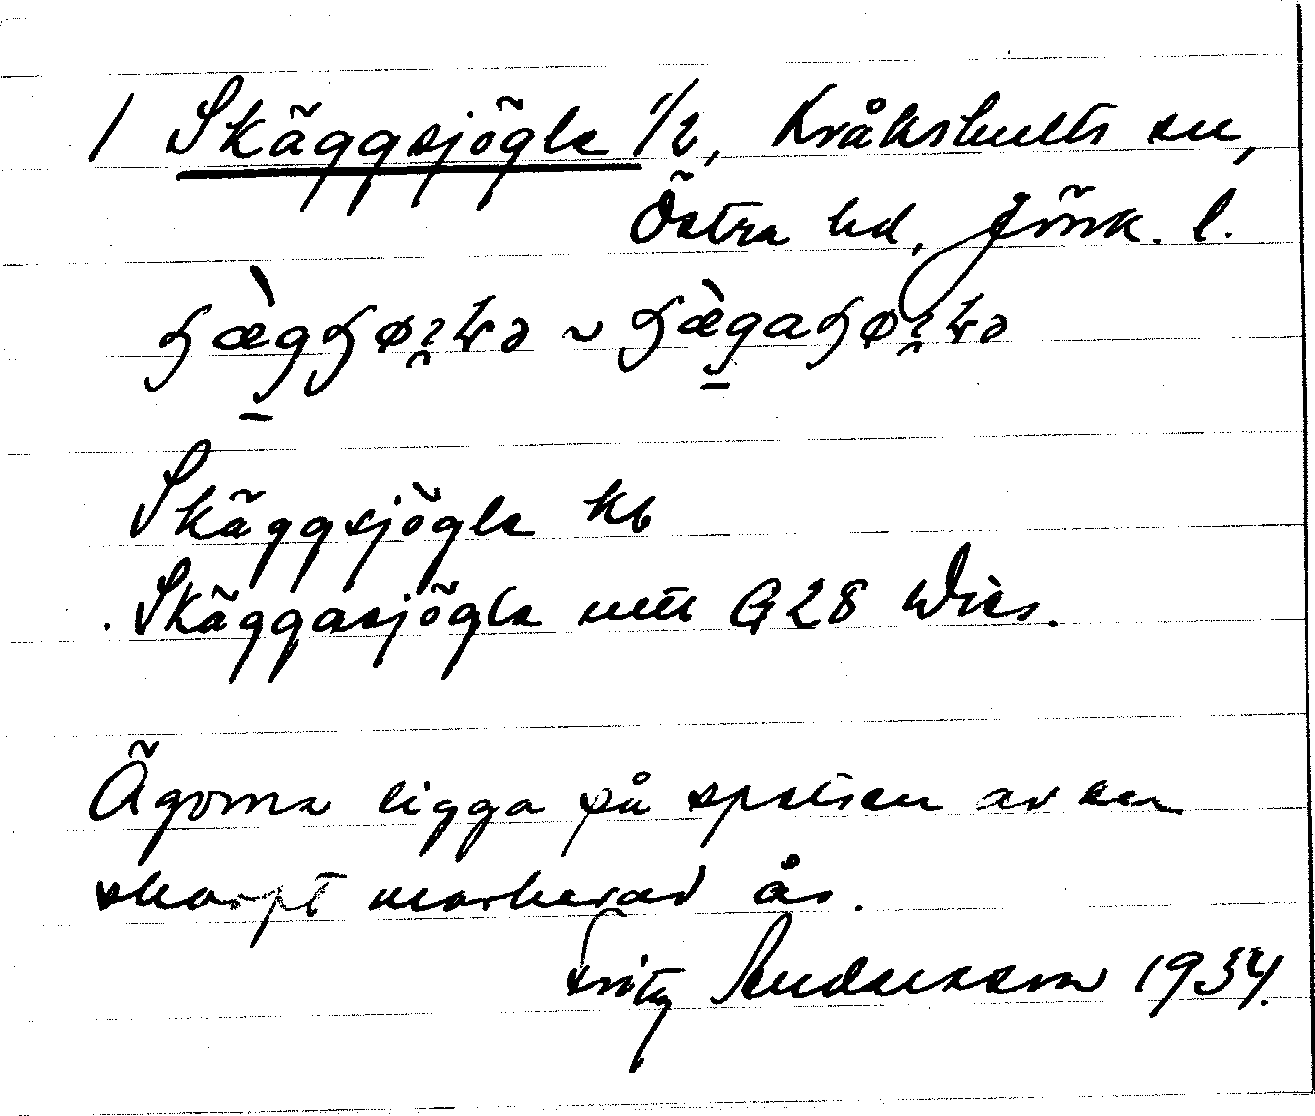 1 Skäggsjögle 1/2, Kråkshults sn,
Östra hd, Jönk. l.
Skäggsjögle kb
Skäggasjögle G 28 Wies.
Ägorna ligga på spetsen av en
skarpt markerad ås.
Fritz Andersson 1934.